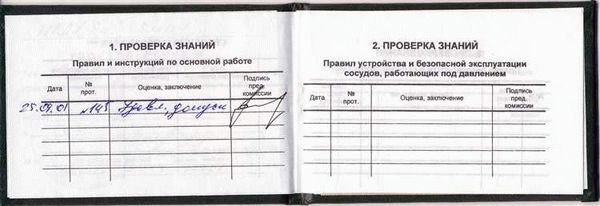 1. ПРОВЕРКА ЗНАНИЙ
Правил и инструкций по основной работе
Дата № прот. Оценка, заключение Подпись пред. комиссии
25.09.01 №145 Удовл, допущен
2. ПРОВЕРКА ЗНАНИЙ
Правил устройства и безопасной эксплуатации
сосудов, работающих под давлением
Дата № прот. Оценка, заключение Подпись пред. комиссии